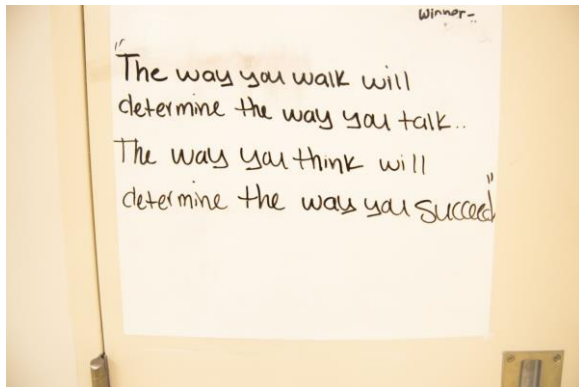 winner-
"The way you walk will
determine the way you talk..
The way you think will
determine the way you succeed"